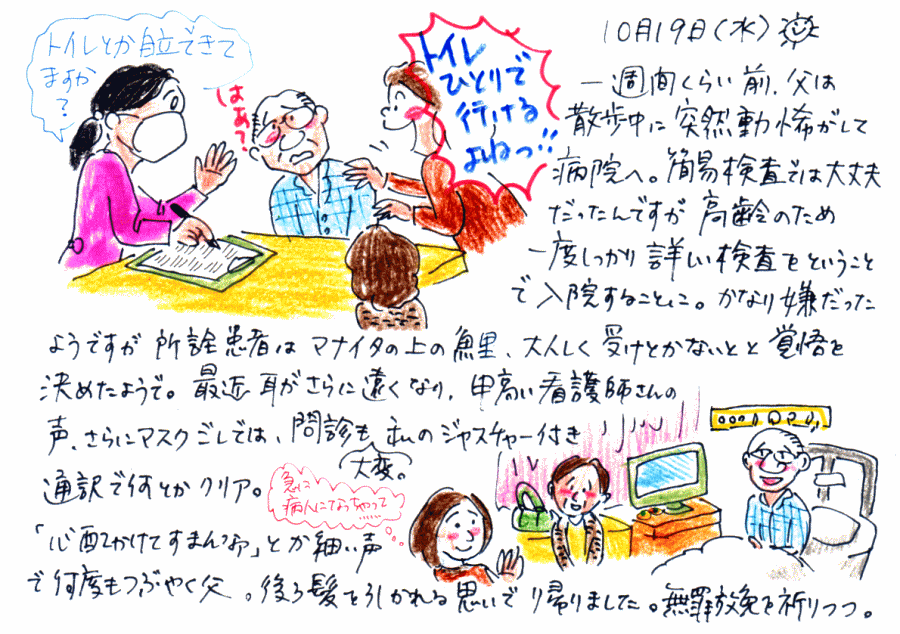 トイレとか自立できて
ますか
?
はあ?
トイレ
ひとりで
行ける
よねっ!!
10月19日(水)
一週間くらい前、父は
散歩中に突然動悸がして
病院へ。簡易検査では大丈夫
だったんですが高齢のため
一度しっかり詳しい検査をということ
で入院することに。かなり嫌だった
ようですが所詮患者はマナイタの上の鯉、大人しく受けとかないとと覚悟を
決めたようで。最近耳がさらに遠くなり、甲高い看護師さんの
声、さらにマスクごしでは、問診も私のジャスチャー付き
通訳で何とかクリア。
大変。
急に
病人になっちゃって
「心配かけてすまんなあ」とか細い声
で何度もつぶやく父。後ろ髪を引かれる思いで帰りました。無罪放免を祈りつつ。